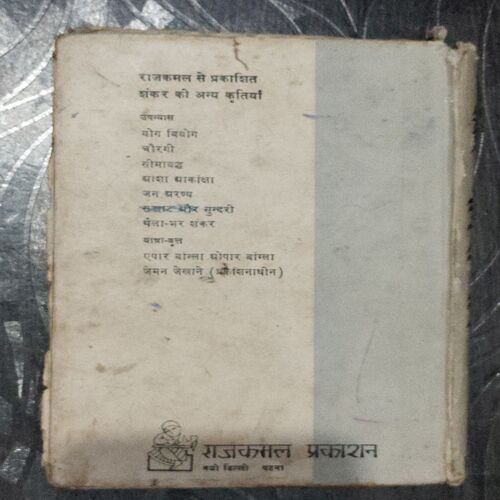 राजकमल से प्रकाशित
शंकर की अन्य कृतियाँ
उपन्यास
योग वियोग
चौरंगी
सीमाबद्ध
आशा आकांक्षा
जन अरण्य
सम्राट और सुन्दरी
थैला-भर शंकर
यात्रा-वृत्त
एपार बांग्ला ओपार बांग्ला
जेमन जेखाने (प्रकाशनाधीन)
राजकमल प्रकाशन
नयी दिल्ली पटना